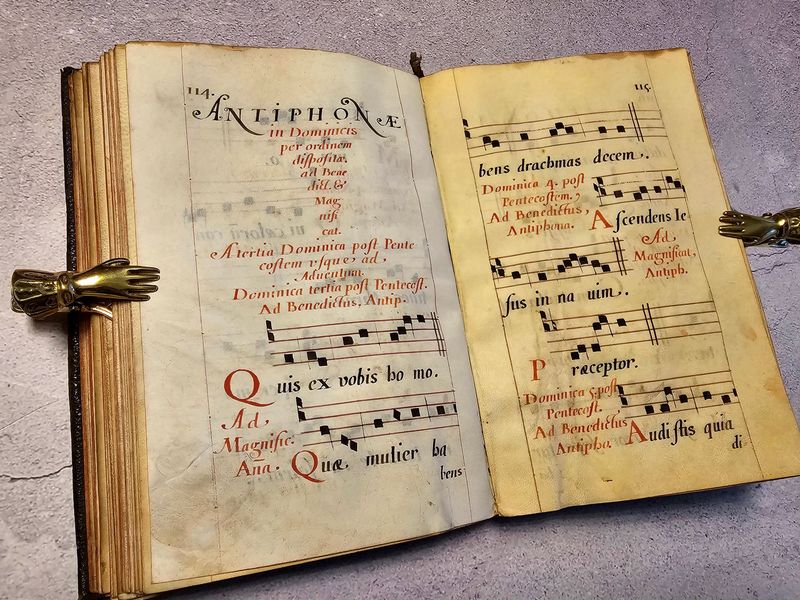 114.
ANTIPHONÆ
in Dominicis
per ordinem
dispositæ,
ad Bene
dict. &
Mag
nifi
cat.
A tertia Dominica post Pente
costem usque, ad,
Adventum.
Dominica tertia post Pentecost.
Ad Benedictus, Antip.
Quis ex vobis ho mo.
Ad,
Magnific.
Aña.
Quæ mulier ha
bens
115.
bens drachmas decem.
Dominica 4. post
Pentecostem.
Ad Benedictus,
Antiphona.
Ascendens Ie
Ad,
Magnificat,
Antiph.
sus in na uim.
Præceptor.
Dominica 5. post
Pentecost.
Ad Benedictus
Antipho.
Audistis quia
di